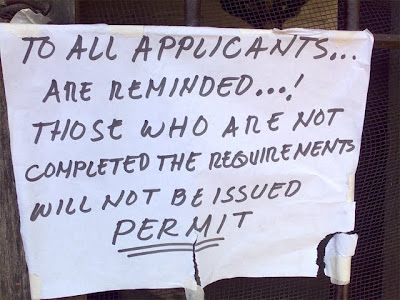 TO ALL APPLICANTS...
ARE REMINDED...!
THOSE WHO ARE NOT
COMPLETED THE REQUIRENENTS
WILL NOT BE ISSUED
PERMIT